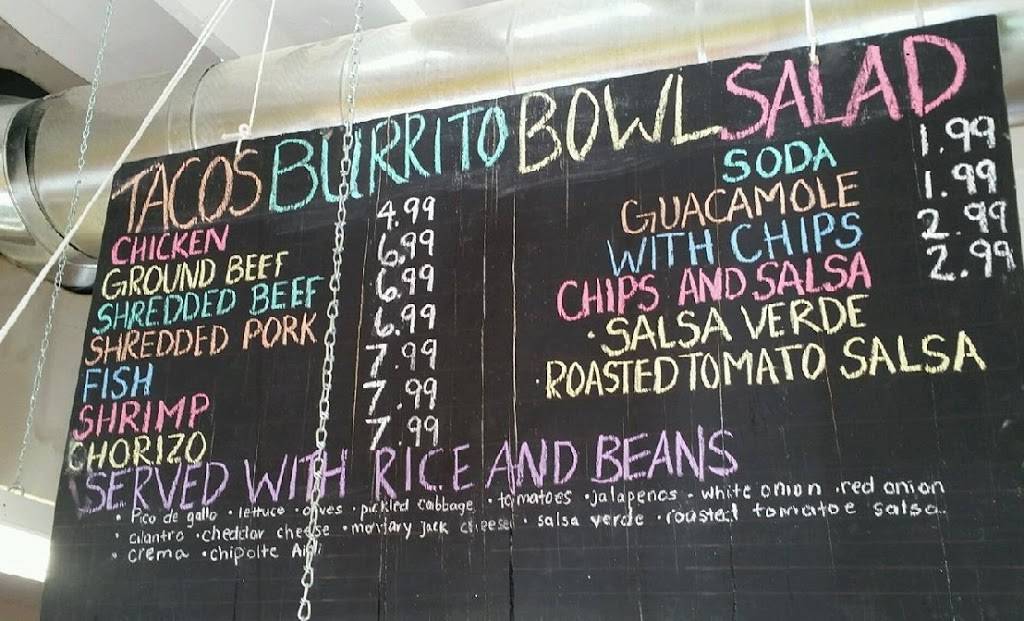 TACOS BURRITO BOWL SALAD
CHICKEN 4.99
GROUND BEEF 6.99
SHREDDED BEEF 6.99
SHREDDED PORK 6.99
FISH 7.99
SHRIMP 7.99
CHORIZO 7.99
SODA 1.99
GUACAMOLE 1.99
WITH CHIPS 2.99
CHIPS AND SALSA 2.99
· SALSA VERDE
· ROASTED TOMATO SALSA
SERVED WITH RICE AND BEANS
· Pico de gallo · lettuce · olives · pickled cabbage · tomatoes · jalapenos · white onion · red onion
· cilantro · cheddar cheese · montary jack cheese · salsa verde · roasted tomatoe salsa
· crema · chipolte